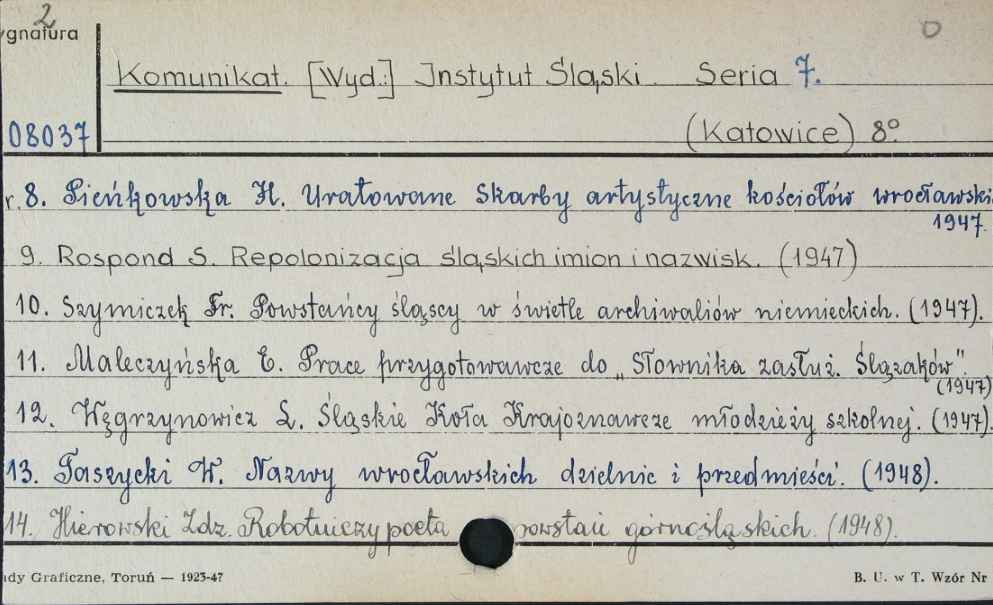 2
ygnatura
Komunikat. [Wyd.:] Instytut Śląski. Seria 7.
08037
(Katowice) 8°
r. 8. Pieńkowska H. Uratowane Skarby artystyczne kościołów wrocławski
1947.
9. Rospond S. Repolonizacja śląskich imion i nazwisk. (1947)
10. Szymiczek Fr. Powstańcy śląscy w świetle archiwaliów niemieckich. (1947).
11. Maleczyńska E. Prace przygotowawcze do „Słownika zasłuż. Ślązaków".
(1947)
12. Węgrzynowicz L. Śląskie Koła Krajoznawcze młodzieży szkolnej. (1947).
13. Taszycki W. Nazwy wrocławskich dzielnic i przedmieści. (1948).
14. Hierowski Zdz. Robotniczy poeta powstań górnośląskich. (1948).
ady Graficzne, Toruń — 1923-47
B. U. w T. Wzór Nr